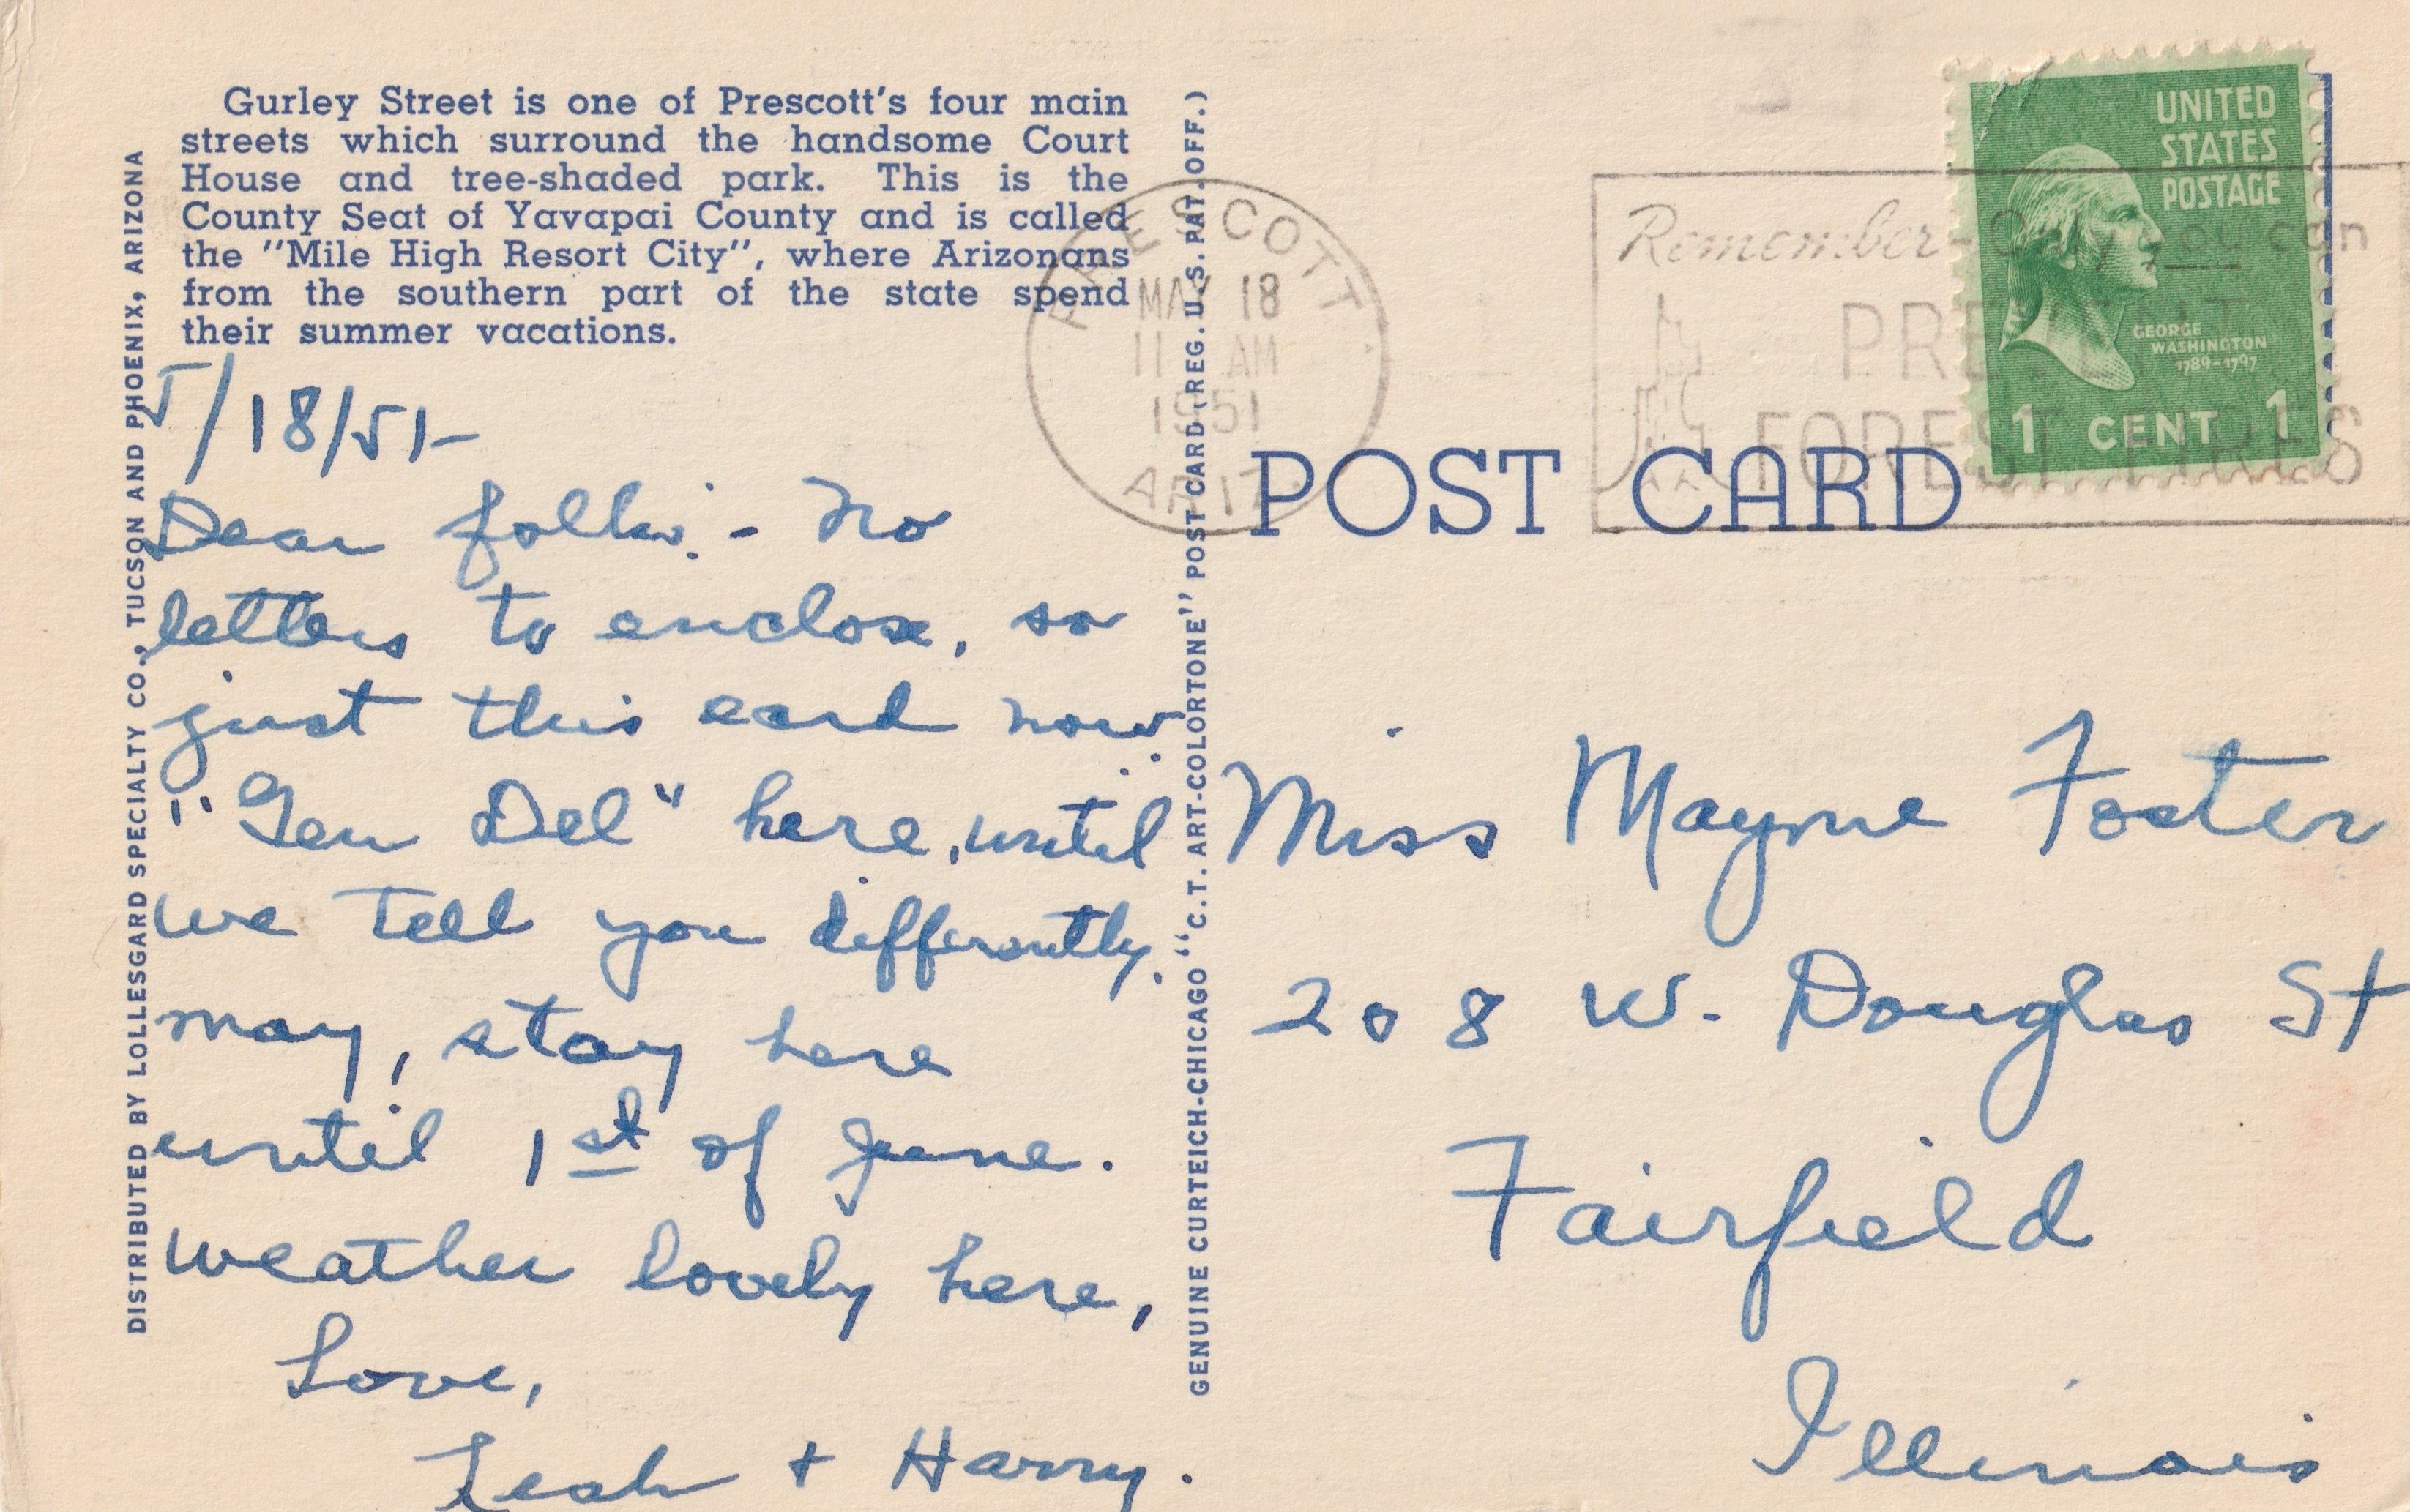 Gurley Street is one of Prescott's four main
streets which surround the handsome Court
House and tree-shaded park. This is the
County Seat of Yavapai County and is called
the "Mile High Resort City", where Arizonans
from the southern part of the state spend
their summer vacations.
DISTRIBUTED BY LOLLESGARD SPECIALTY CO., TUCSON AND PHOENIX, ARIZONA
5/18/51-
Dear folks:- No
letters to enclose, so
just this card now.
"Gen Del" here, until
we tell you differently.
may, stay here
until 1st of June.
weather lovely here,
Love,
Leah + Harry.
GENUINE CURTEICH-CHICAGO "C.T. ART-COLORTONE" POST CARD (REG. U.S. PAT. OFF.)
PRESCOTT
MAY 18
11 AM
1951
ARIZ.
Remember-Only you can
PREVENT
FOREST FIRES
UNITED
STATES
POSTAGE
GEORGE
WASHINGTON
1789-1797
1 CENT 1
POST CARD
Miss Mayme Foster
208 W. Douglas St
Fairfield
Illinois